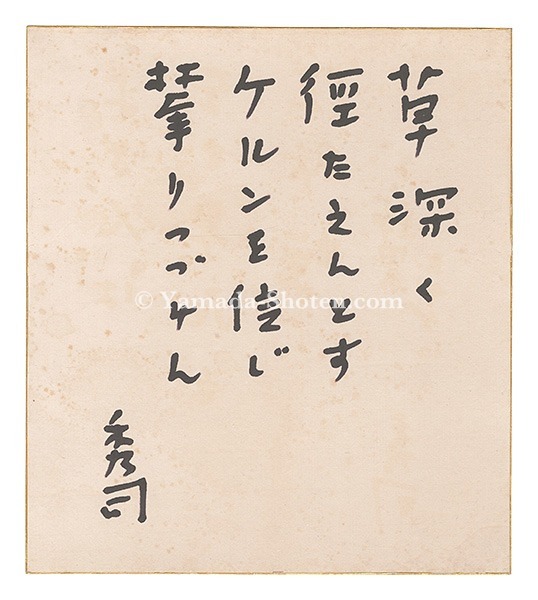 草深く
徑たえんとす
ケルンを信じ
攀りつづけん
秀司
© Yamada Shoten.com